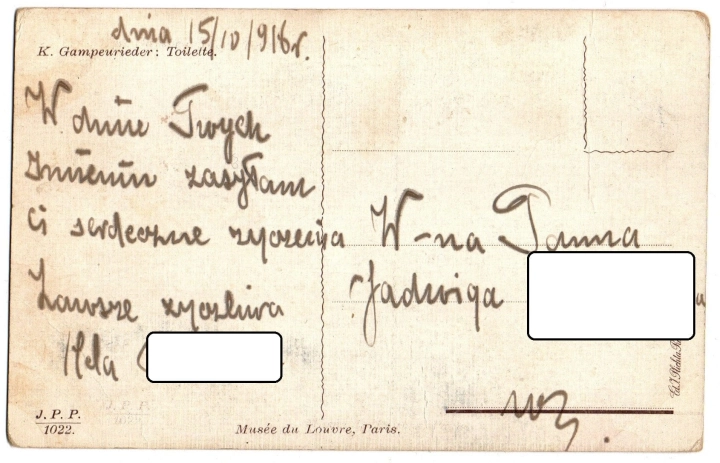 dnia 15/10/916r.
K. Gampeurieder: Toilette.
W dniu Twych
Imienin zasyłam
Ci serdeczne życzenija
Zawsze życzliwa
Hela
W-na Panna
Jadwiga
J. P. P.
1022.
Musée du Louvre, Paris.